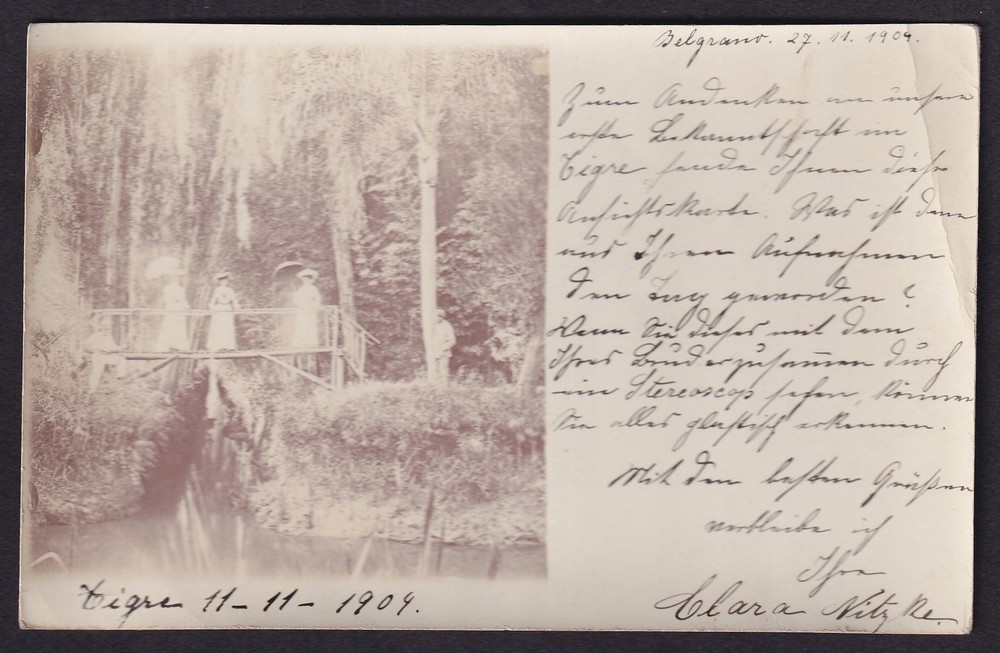 Belgrano. 27. 11. 1904.
Zum Andenken an unsere
erste Bekanntschaft im
Tigre sende Ihnen diese
Ansichtskarte. Was ist denn
aus Ihren Aufnahmen
den Tag geworden?
Wenn Sie dieses mit dem
Ihres Bruder zusammen durch
ein Stereoscop sehen, können
Sie alles plastisch erkennen.
Mit den besten Grüßen
verbleibe ich
Ihre
Clara Nitzke.
Tigre 11 - 11 - 1904.